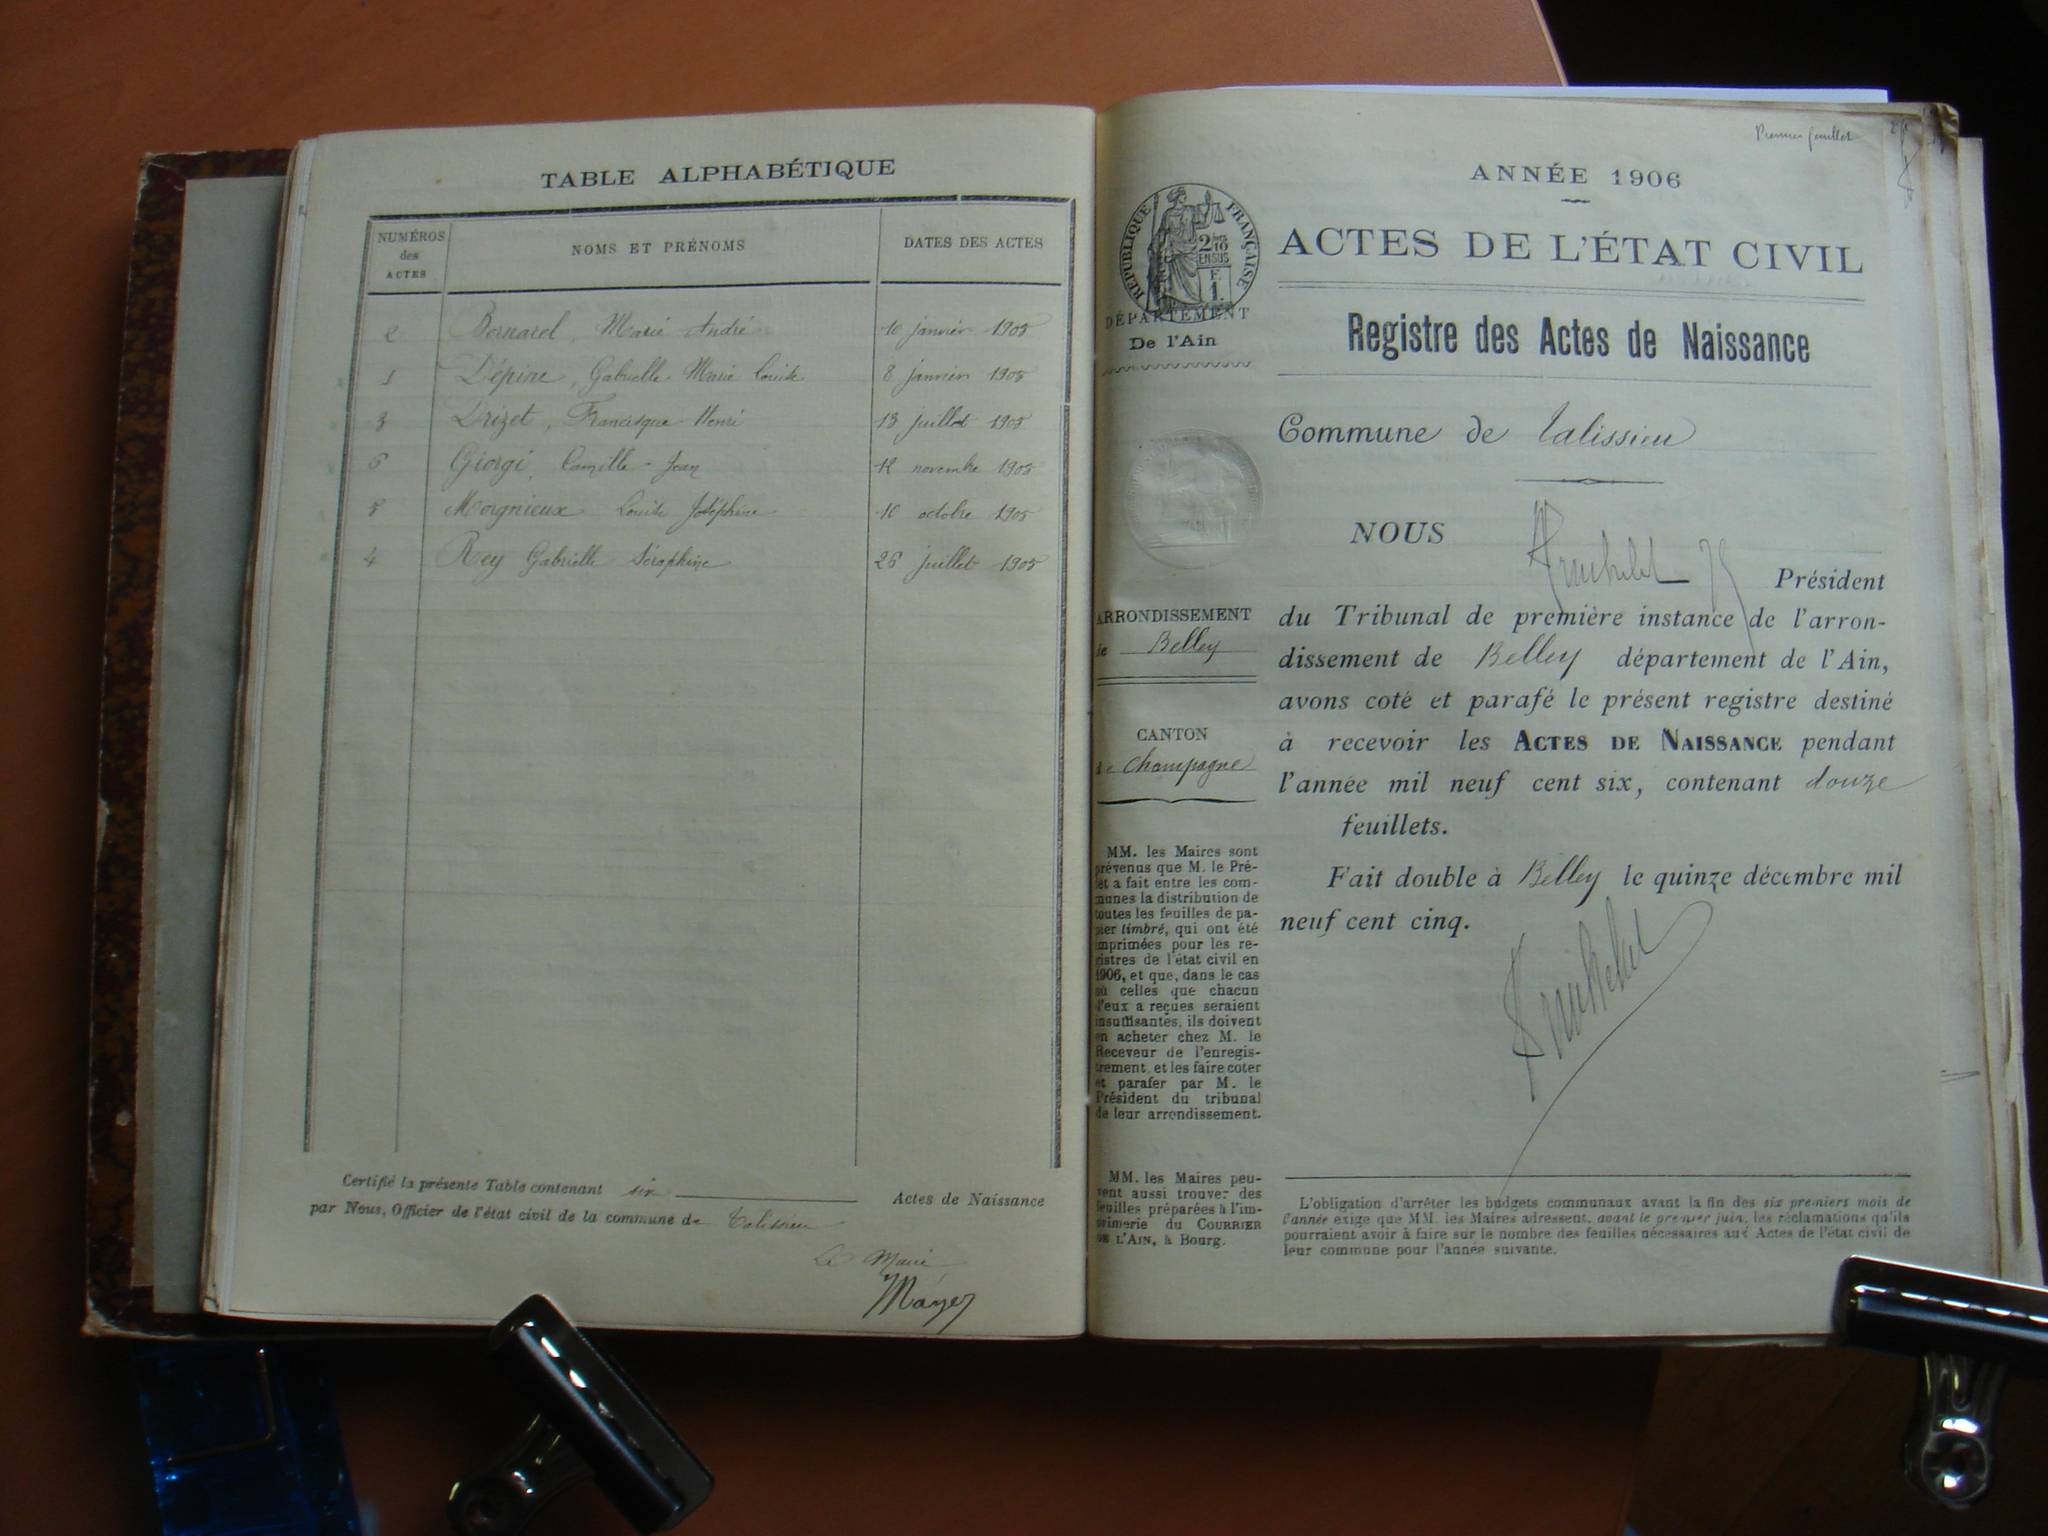 TABLE ALPHABÉTIQUE
NUMÉROS des ACTES NOMS ET PRÉNOMS DATES DES ACTES
2 Bernard, Marie André 10 janvier 1905
1 Dépine, Gabrielle Marie Louise 8 janvier 1905
3 Drizet, Francisque Henri 13 juillet 1905
6 Giorgi, Camille Jean 12 novembre 1905
5 Moignieux Louise Joséphine 10 octobre 1905
4 Rey Gabrielle Séraphine 26 juillet 1905
Certifié la présente Table contenant six Actes de Naissance
par Nous, Officier de l'état civil de la commune de Talissieu
Le Maire
Premier feuillet
ANNÉE 1906
ACTES DE L'ÉTAT CIVIL
RÉPUBLIQUE FRANÇAISE
DÉPARTEMENT
De l'Ain
Registre des Actes de Naissance
Commune de Talissieu
NOUS
Président
du Tribunal de première instance de l'arron-
dissement de Belley département de l'Ain,
avons coté et parafé le présent registre destiné
à recevoir les ACTES DE NAISSANCE pendant
l'année mil neuf cent six, contenant douze
feuillets.
Fait double à Belley le quinze décembre mil
neuf cent cinq.
ARRONDISSEMENT
de Belley
CANTON
de Champagne
MM. les Maires sont
prévenus que M. le Pré-
fet a fait entre les com-
munes la distribution de
toutes les feuilles de pa-
pier timbré, qui ont été
imprimées pour les re-
gistres de l'état civil en
1906, et que, dans le cas
où celles que chacun
d'eux a reçues seraient
insuffisantes, ils doivent
en acheter chez M. le
Receveur de l'enregis-
trement, et les faire coter
et parafer par M. le
Président du tribunal
de leur arrondissement.
MM. les Maires peu-
vent aussi trouver des
feuilles préparées à l'im-
primerie du COURRIER
DE L'AIN, à Bourg.
L'obligation d'arrêter les budgets communaux avant la fin des six premiers mois de
l'année exige que MM. les Maires adressent, avant le premier juin, les réclamations qu'ils
pourraient avoir à faire sur le nombre des feuilles nécessaires aux Actes de l'état civil de
leur commune pour l'année suivante.